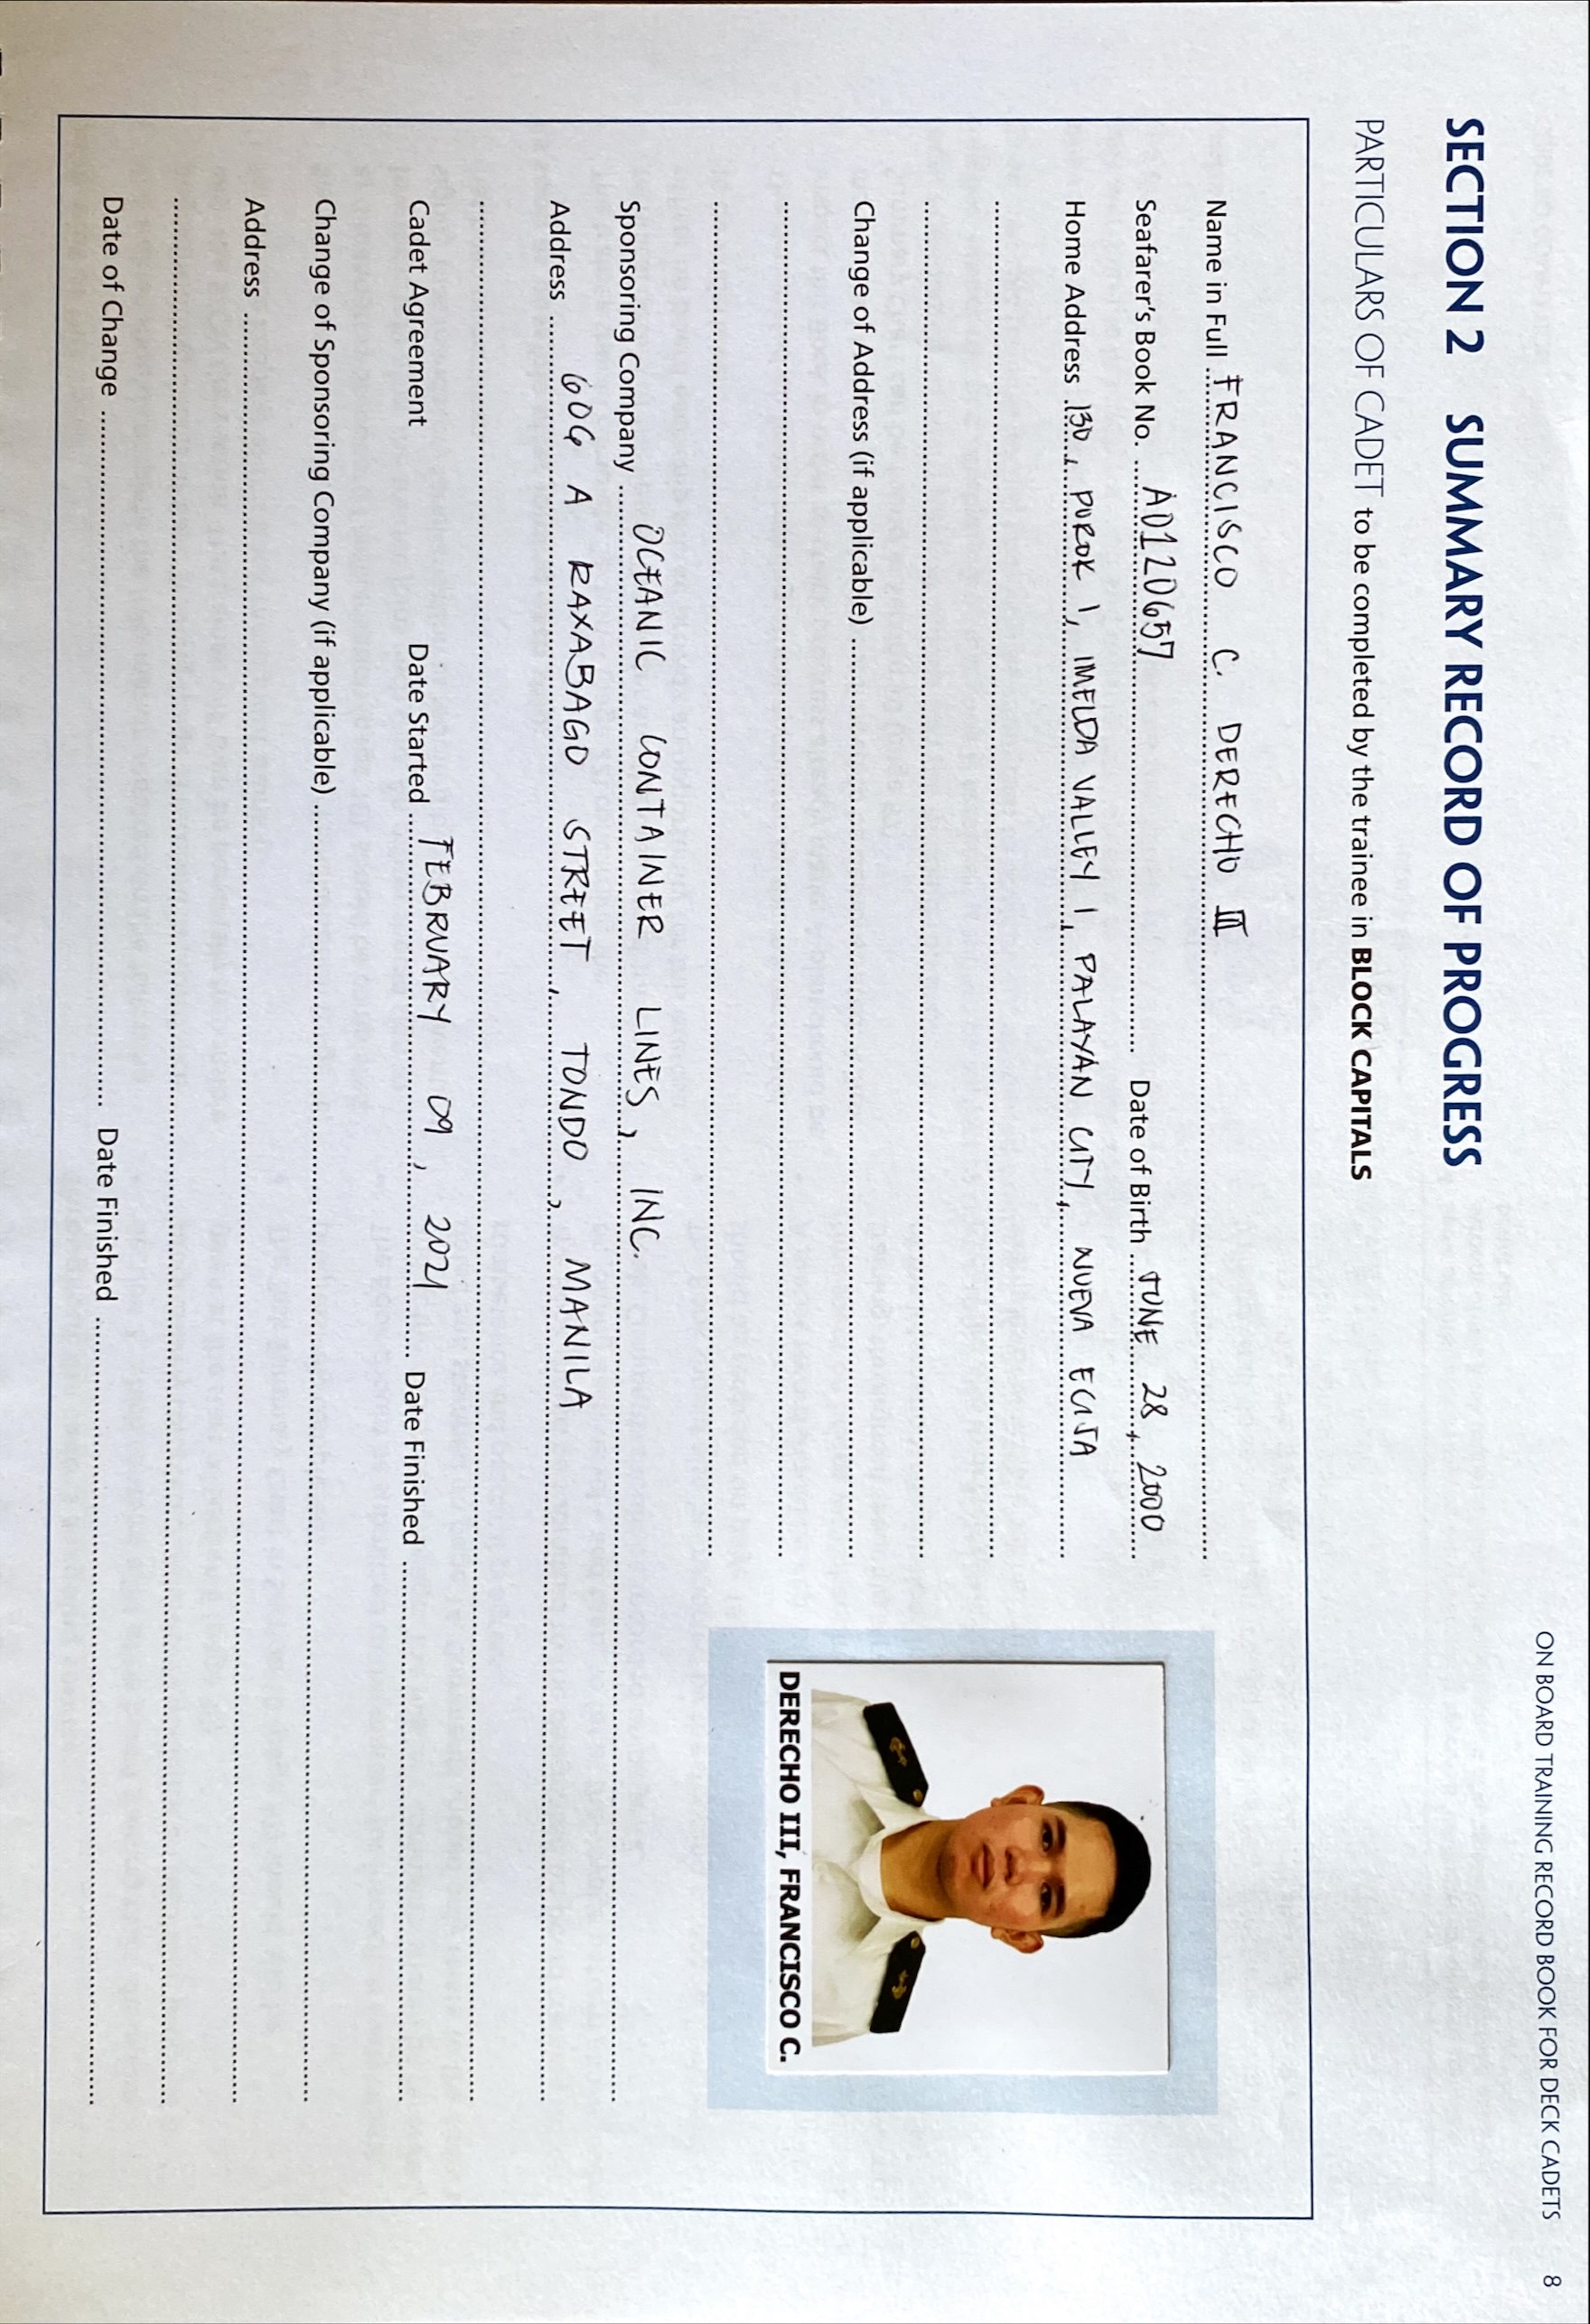 ON BOARD TRAINING RECORD BOOK FOR DECK CADETS 8
SECTION 2 SUMMARY RECORD OF PROGRESS
PARTICULARS OF CADET to be completed by the trainee in BLOCK CAPITALS
Name in Full FRANCISCO C. DERECHO III
Seafarer's Book No. A0120657 Date of Birth JUNE 28, 2000
Home Address 130, PUROK 1, IMELDA VALLEY 1, PALAYAN CITY, NUEVA ECIJA
Change of Address (if applicable)
DERECHO III, FRANCISCO C.
Sponsoring Company OCEANIC CONTAINER LINES, INC.
Address 606 A RAXABAGO STREET, TONDO, MANILA
Cadet Agreement Date Started FEBRUARY 09, 2021 Date Finished
Change of Sponsoring Company (if applicable)
Address
Date of Change Date Finished